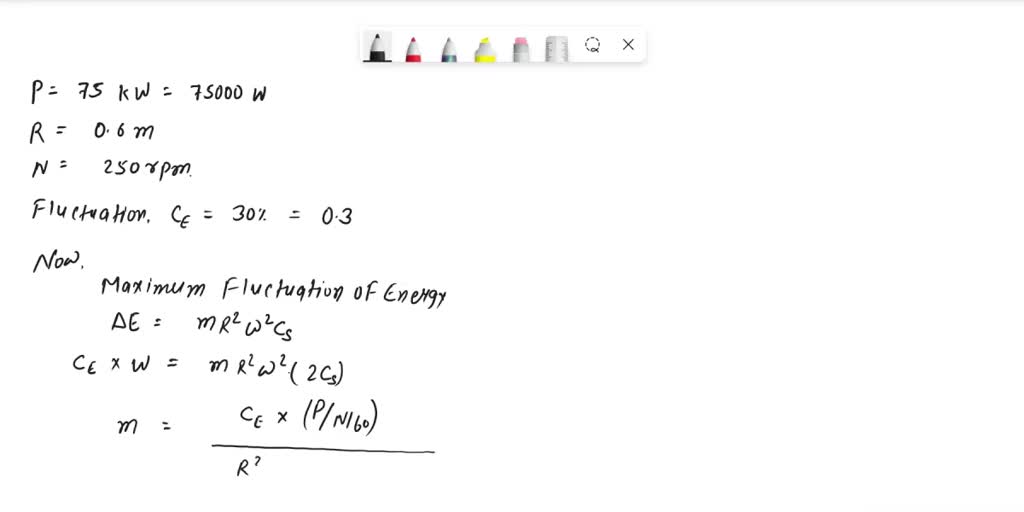 P = 75 kW = 75000 W
R = 0.6 m
N = 250 rpm.
Fluctuation, C_E = 30% = 0.3
Now,
Maximum Fluctuation of Energy
ΔE = mR²ω²C_s
C_E × W = mR²ω²(2C_s)
m = C_E × (P/N/60)
R²